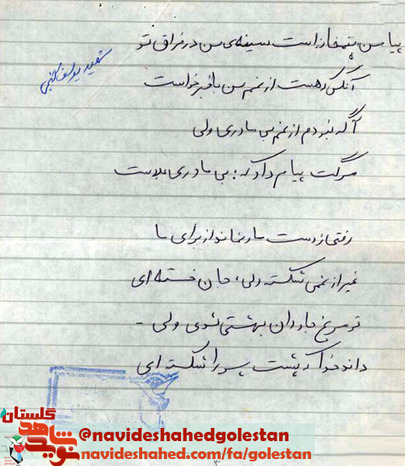 سینه‌ی من در فراق تو
آنکس که هست از غم من با خبر خداست
شهید یوسف
آگه نبودم از غم بی مادری ولی
مرگت پیام داد که: بی مادری بلاست
رفتی ز دست مادر غمخوار برای ما
غیر از غمی شکسته دلی، جان خسته ای
تو مرغ جاودان بهشتی شوی ولی -
داند خدا که پشت پسر را شکسته ای
گلستان
نوید شاهد
@navideshahedgolestan
navideshahed.com/fa/golestan